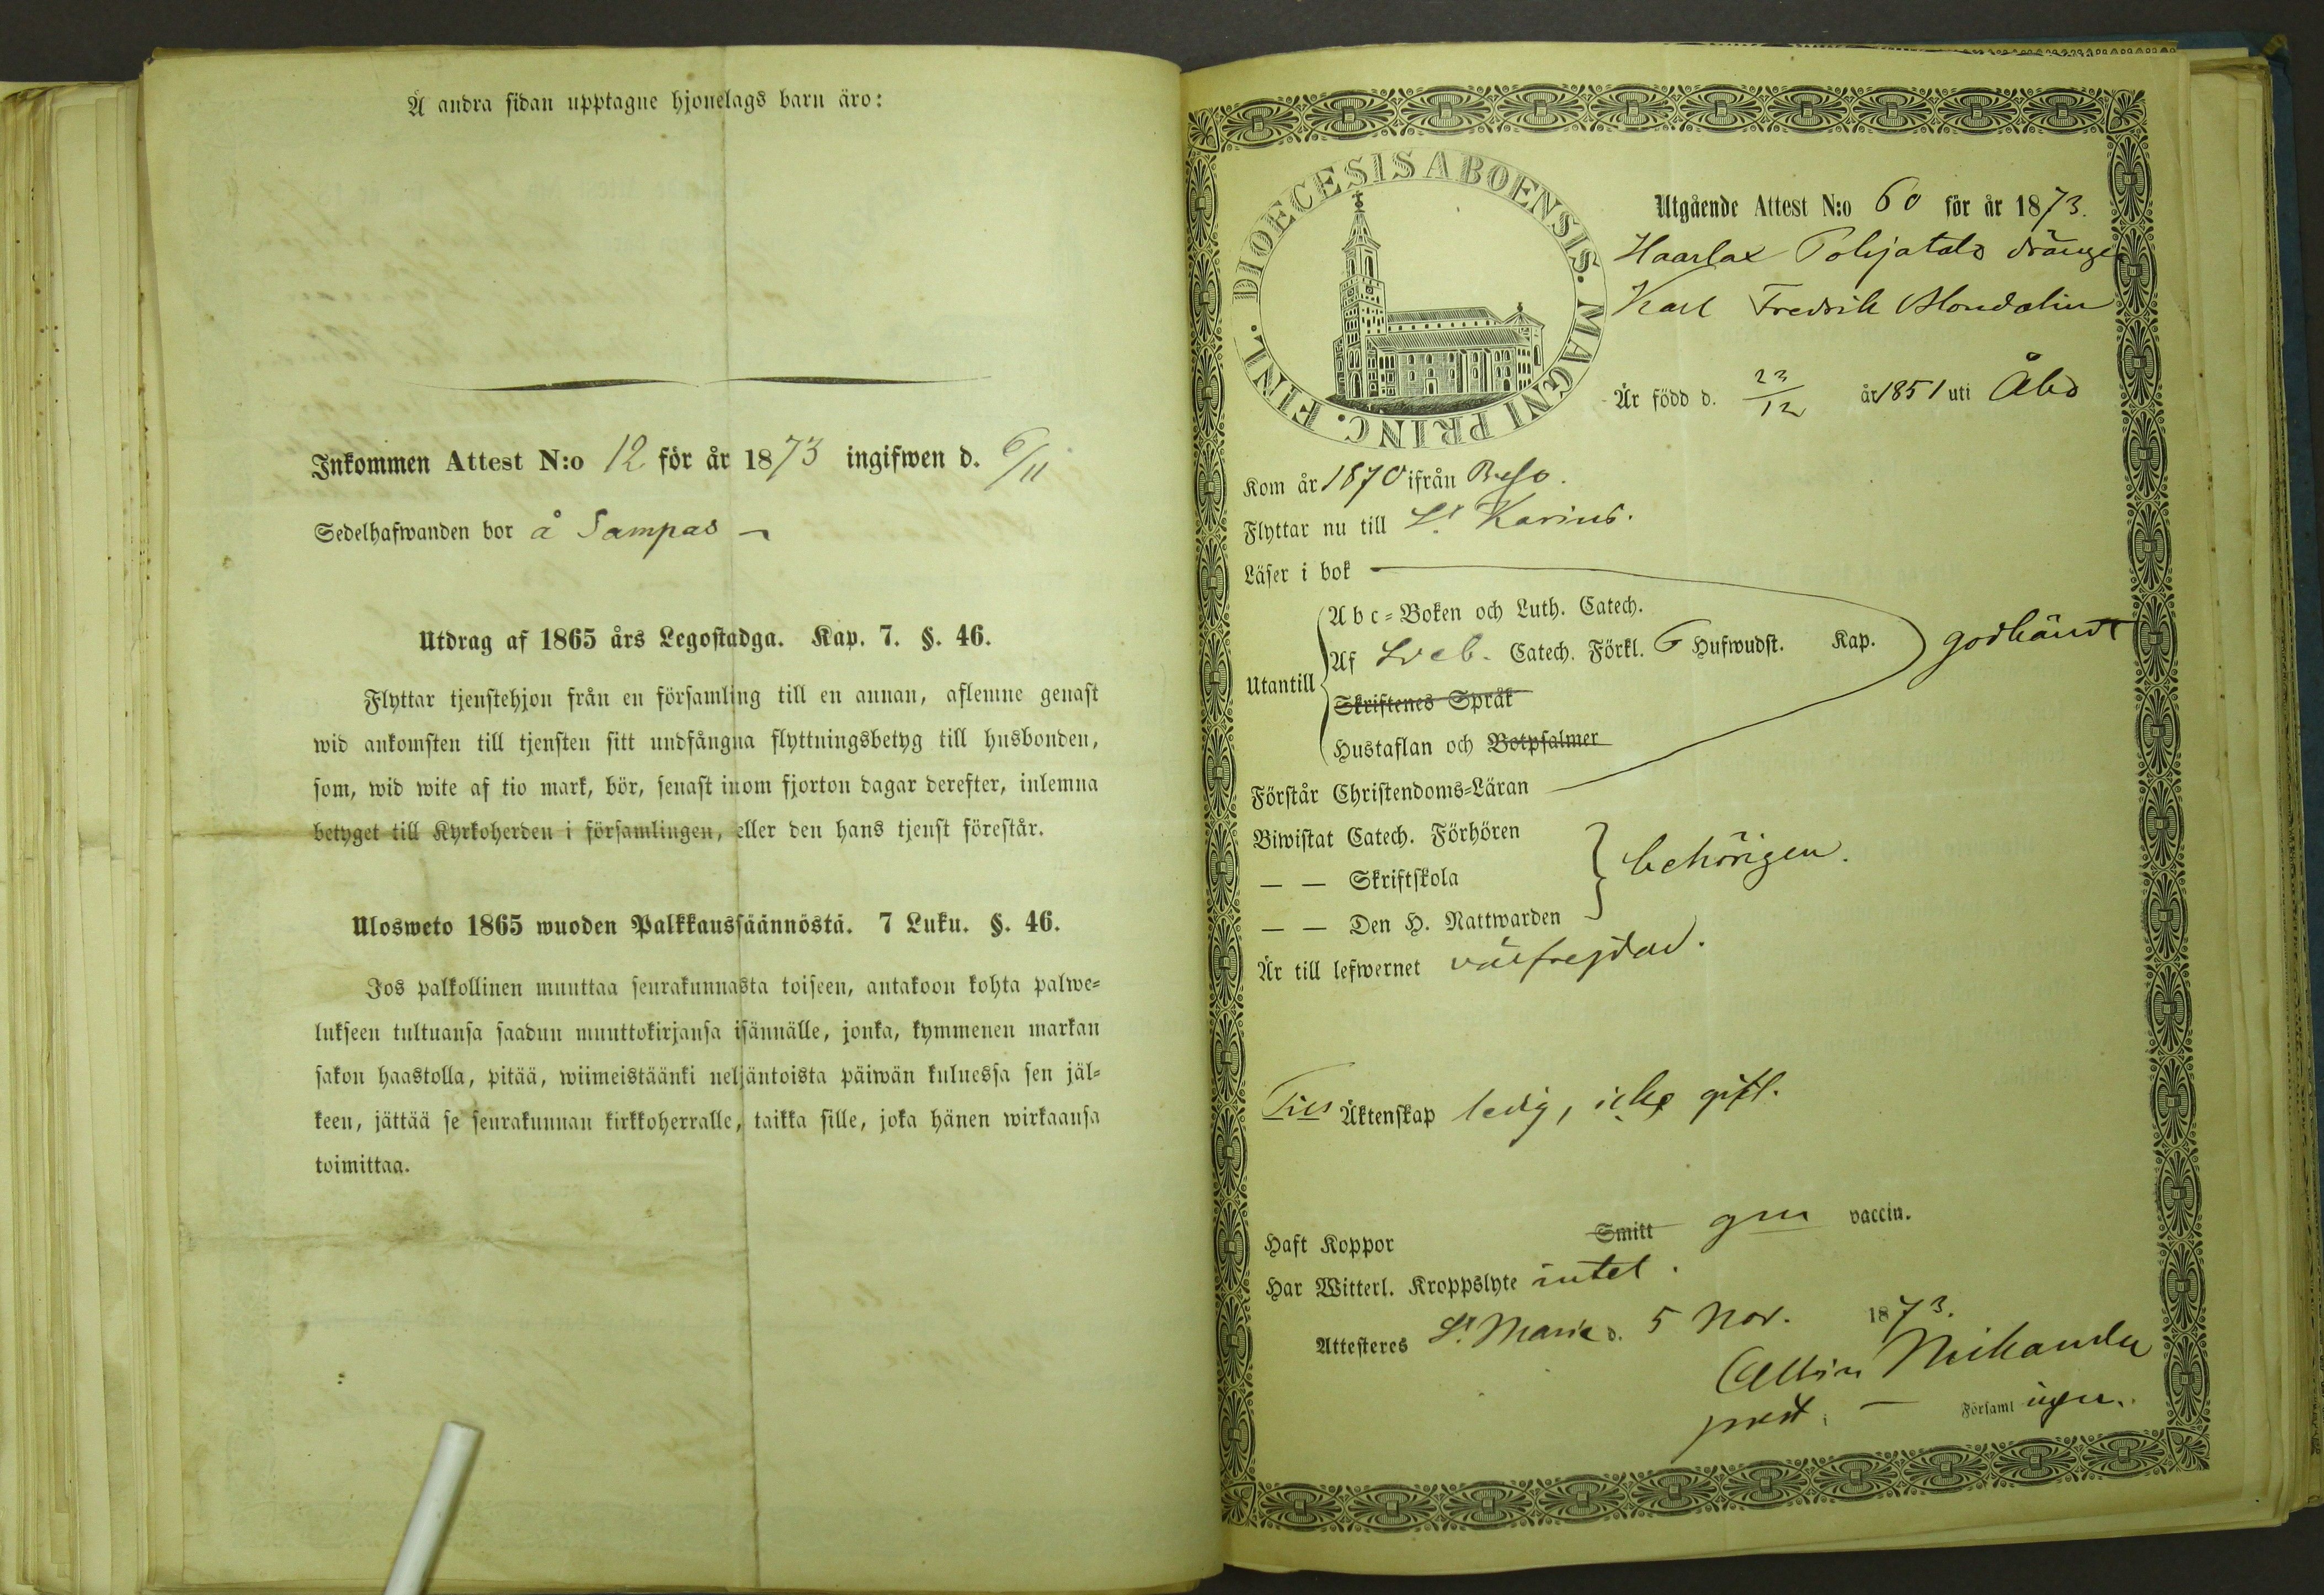 Å andra sidan upptagne hjonelags barn äro:
Inkommen Attest N:o 12 för år 1873 ingifwen d. 6/11
Sedelhafwanden bor å Sampas
Utdrag af 1865 års Legostadga. Kap. 7. §. 46.
Flyttar tjenstehjon från en församling till en annan, aflemne genast
wid ankomsten till tjensten sitt undfångna flyttningsbetyg till husbonden,
som, wid wite af tio mark, bör, senast inom fjorton dagar derefter, inlemna
betyget till Kyrkoherden i församlingen, eller den hans tjenst förestår.
Ulosweto 1865 wuoden Palkkaussäännöstä. 7 Luku. §. 46.
Jos palkollinen muuttaa seurakunnasta toiseen, antakoon kohta palwe=
lukseen tultuansa saadun muuttokirjansa isännälle, jonka, kymmenen markan
sakon haastolla, pitää, wiimeistäänki neljäntoista päiwän kuluessa sen jäl=
keen, jättää se seurakunnan kirkkoherralle, taikka sille, joka hänen wirkaansa
toimittaa.
DIOECESIS ABOENSIS. MAGNI PRINC. FINL.
Utgående Attest N:o 60 för år 1873.
Haarlax Pohjatalo dränge
Karl Fredrik
Är född d. 23/12 år 1851 uti Åbo
Kom år 1870 ifrån Reso.
Flyttar nu till St Karins.
Läser i bok
Abc=Boken och Luth. Catech.
Utantill Af Sveb. Catech. Förkl. 6 Hufwudst. Kap. godkändt
Skriftenes Språk
Hustaflan och Botpsalmer
Förstår Christendoms=Läran
Biwistat Catech. Förhören
— — Skriftskola behörigen.
— — Den H. Nattwarden
Är till lefwernet välfrejdad.
Till Äktenskap ledig, icke gift.
Haft Koppor Smitt gm vaccin.
Har Witterl. Kroppslyte intet.
Attesteres St Marie d. 5 Nov. 1873.
Albin Nikander
prest i — Församl ingen.